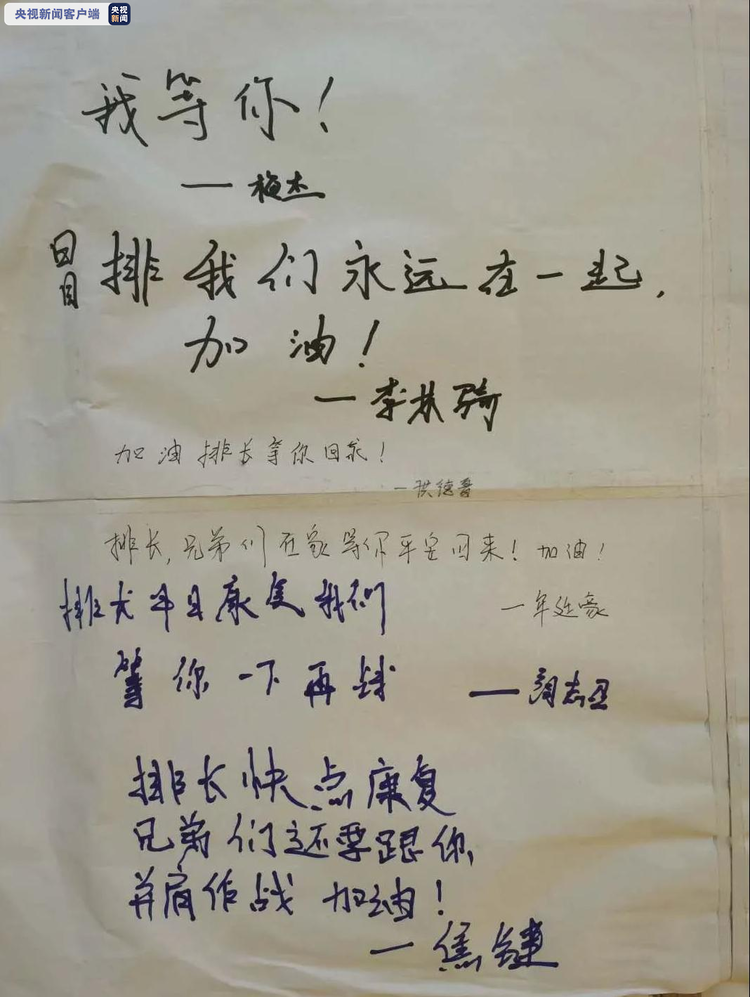 央视新闻客户端 央视新闻
我等你!
一梅杰
冒排我们永远在一起,
加油!
一李林骑
加油排长等你回来!
一洪德晋
排长,兄弟们在家等你平安回来!加油!
排长早日康复我们
一年廷豪
等你一下再战
一颜志卫
排长快点康复
兄弟们还要跟你
并肩作战 加油!
一焦健